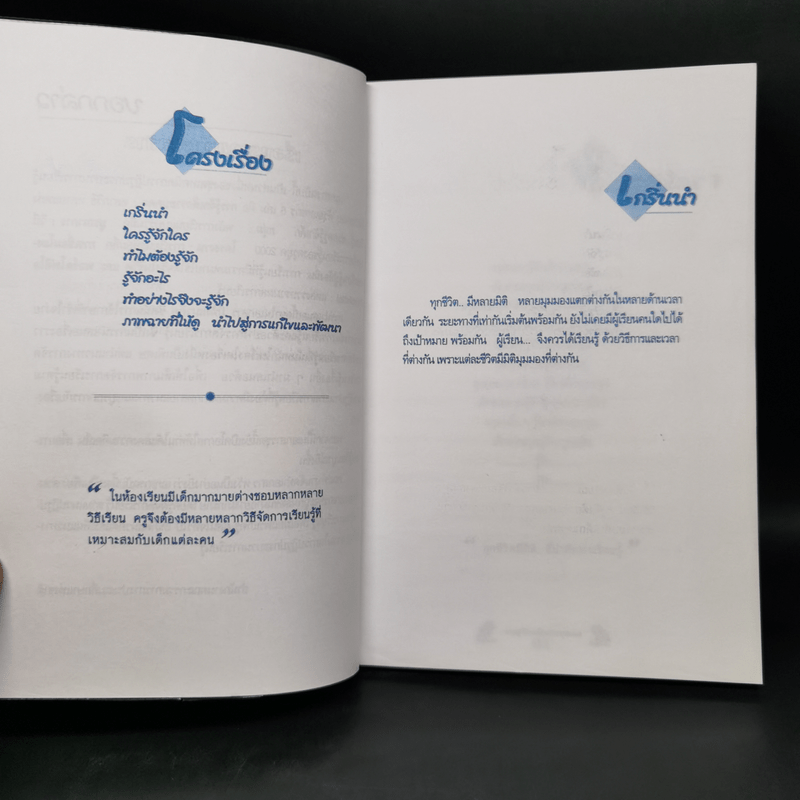 โครงเรื่อง
เกริ่นนำ
ใครรู้จักใคร
ทำไมต้องรู้จัก
รู้จักอะไร
ทำอย่างไรจึงจะรู้จัก
ภาพฉายที่ให้ดู นำไปสู่การแก้ไขและพัฒนา
“ ในห้องเรียนมีเด็กมากมายต่างชอบหลากหลาย
วิธีเรียน ครูจึงต้องมีหลายหลากวิธีจัดการเรียนรู้ที่
เหมาะสมกับเด็กแต่ละคน ”
เกริ่นนำ
ทุกชีวิต.. มีหลายมิติ หลายมุมมองแตกต่างกันในหลายด้านเวลา
เดียวกัน ระยะทางที่เท่ากันเริ่มต้นพร้อมกัน ยังไม่เคยมีผู้เรียนคนใดไปได้
ถึงเป้าหมาย พร้อมกัน ผู้เรียน... จึงควรได้เรียนรู้ ด้วยวิธีการและเวลา
ที่ต่างกัน เพราะแต่ละชีวิตมีมิติมุมมองที่ต่างกัน